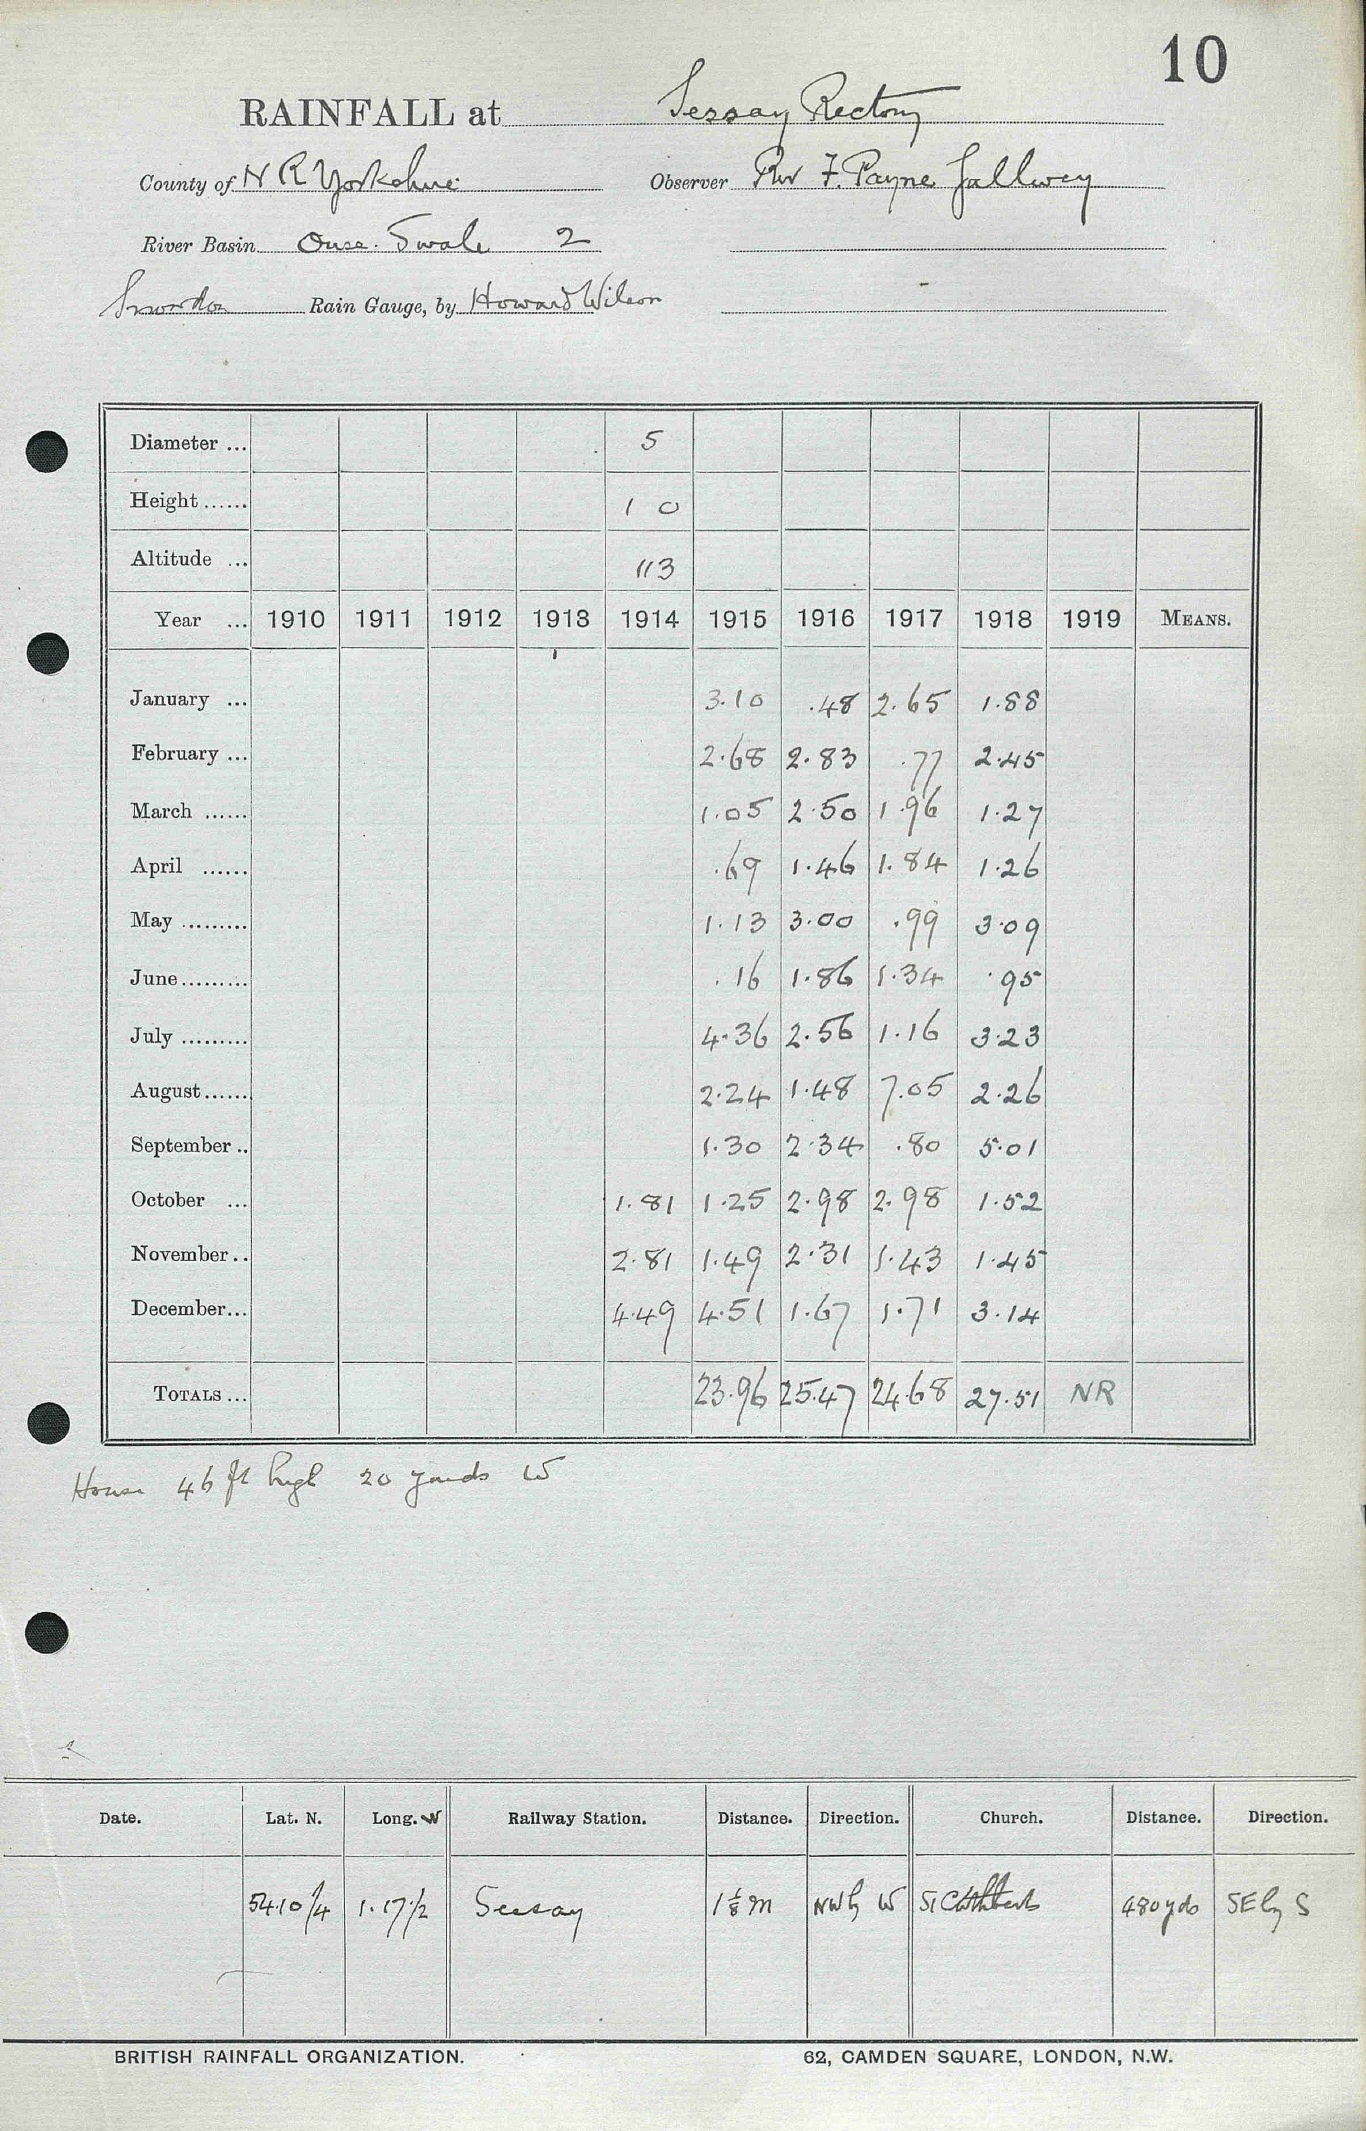 10
RAINFALL at Sessay Rectory
County of N R Yorkshire Observer Rev F. Payne Gallwey
River Basin Ouse. Swale 2
Snowdon Rain Gauge, by Howard Wilson
Diameter ... 5
Height ...... 1 0
Altitude ... 113
Year ... 1910 1911 1912 1913 1914 1915 1916 1917 1918 1919 MEANS.
January ... 3.10 .48 2.65 1.88
February ... 2.68 2.83 .77 2.45
March ...... 1.05 2.50 1.96 1.27
April ...... .69 1.46 1.84 1.26
May ......... 1.13 3.00 .99 3.09
June......... .16 1.86 1.34 .95
July ......... 4.36 2.56 1.16 3.23
August...... 2.24 1.48 7.05 2.26
September .. 1.30 2.34 .80 5.01
October ... 1.81 1.25 2.98 2.98 1.52
November .. 2.81 1.49 2.31 1.43 1.45
December... 4.49 4.51 1.67 1.71 3.14
TOTALS ... 23.96 25.47 24.68 27.51 NR
House 46 ft high 20 yards W
Date. Lat. N. Long. W Railway Station. Distance. Direction. Church. Distance. Direction.
54.10 1/4 1.17 1/2 Sessay 1 1/8 m NW by W St Cuthberts 480 yds SE by S
BRITISH RAINFALL ORGANIZATION. 62, CAMDEN SQUARE, LONDON, N.W.